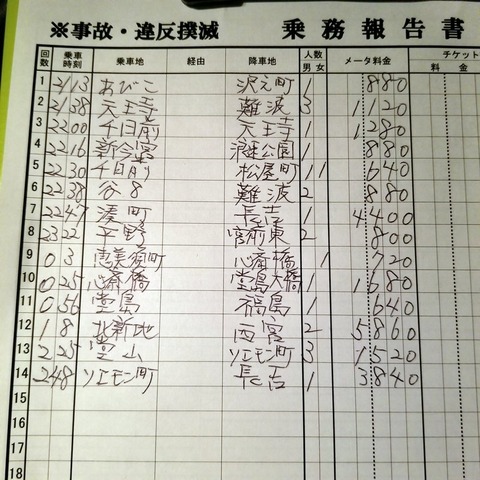 ※事故・違反撲滅 乗務報告書
回数 乗車時刻 乗車地 経由 降車地 人数 男 女 メータ料金 チケット 料金
1 21 13 あびこ 沢之町 1 880
2 21 38 天王寺 難波 3 1120
3 22 00 千日前 天王寺 1 1280
4 22 16 新今宮 浪速公園 1 880
5 22 30 千日前 松屋町 1 1 640
6 22 38 谷8 難波 2 880
7 22 47 湊町 長吉 1 4400
8 23 22 平野 宮前東 2 800
9 0 3 恵美須町 心斎橋 1 720
10 0 25 心斎橋 堂島大橋 1 1680
11 0 56 堂島 福島 1 640
12 1 8 北新地 西宮 2 5860
13 2 25 堂山 ソエモン町 3 1520
14 2 48 ソエモン町 長吉 1 3840
15
16
17
18